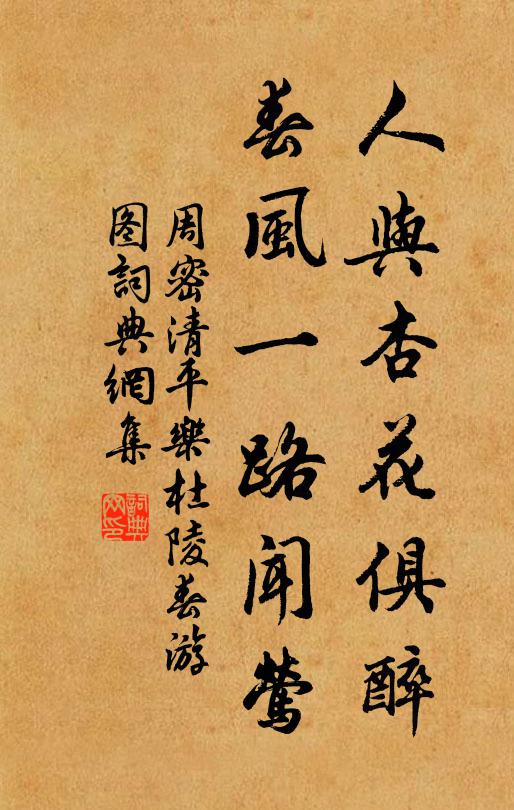 人與杏花俱醉
春風一路聞鶯
周密清平樂杜陵春游
图詞典網集